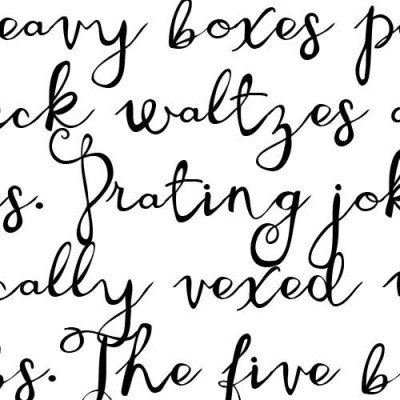 eavy boxes p
ck waltzes a
s. Prating jok
cally vexed
bs. The five b